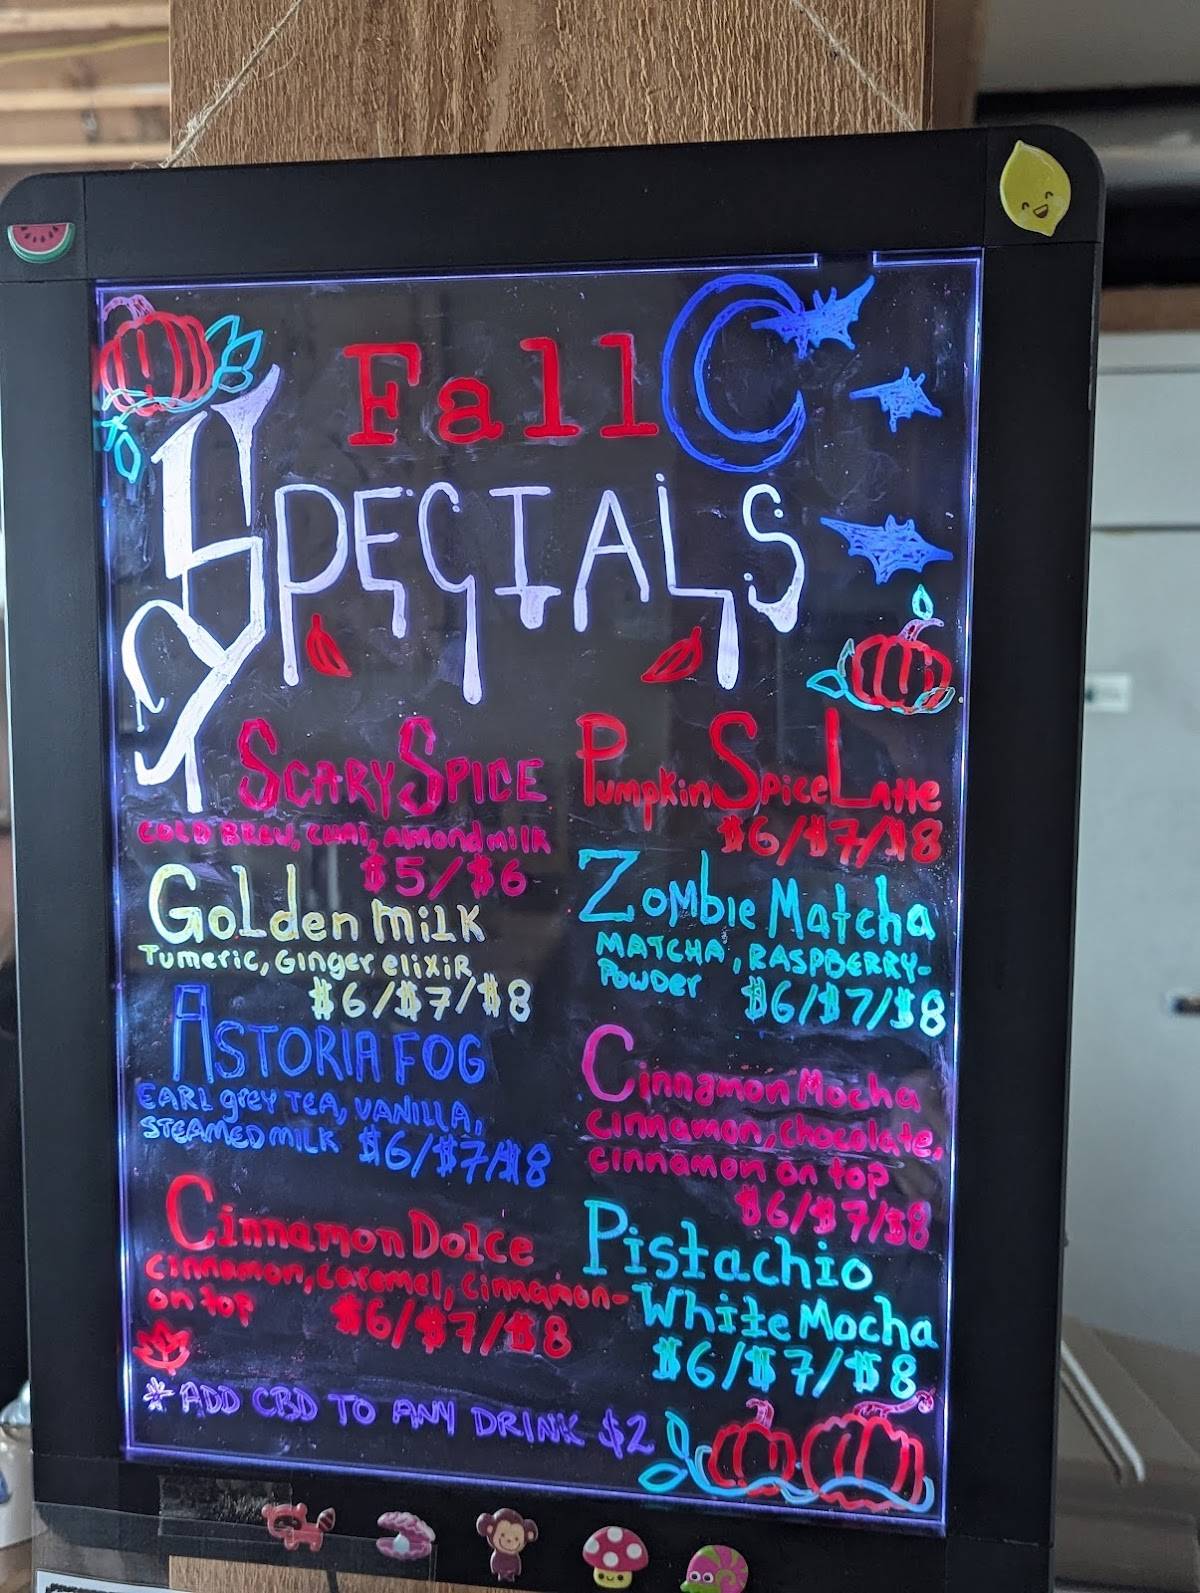 Fall
SPECIALS
SCARY SPICE
COLD BREW, CHAI, Almond milk
$5/$6
Golden MiLK
Tumeric, Ginger elixiR
$6/$7/$8
ASTORIA FOG
EARL grey TEA, VANILLA,
STEAMED MILK $6/$7/$8
Cinnamon Dolce
Cinnamon, Caramel, Cinnamon-
on top $6/$7/$8
Pumpkin Spice Latte
$6/$7/$8
Zombie Matcha
MATCHA, RASPBERRY-
Powder $6/$7/$8
Cinnamon Mocha
Cinnamon, Chocolate,
Cinnamon on top
$6/$7/$8
Pistachio
White Mocha
$6/$7/$8
* ADD CBD TO ANY DRINK $2